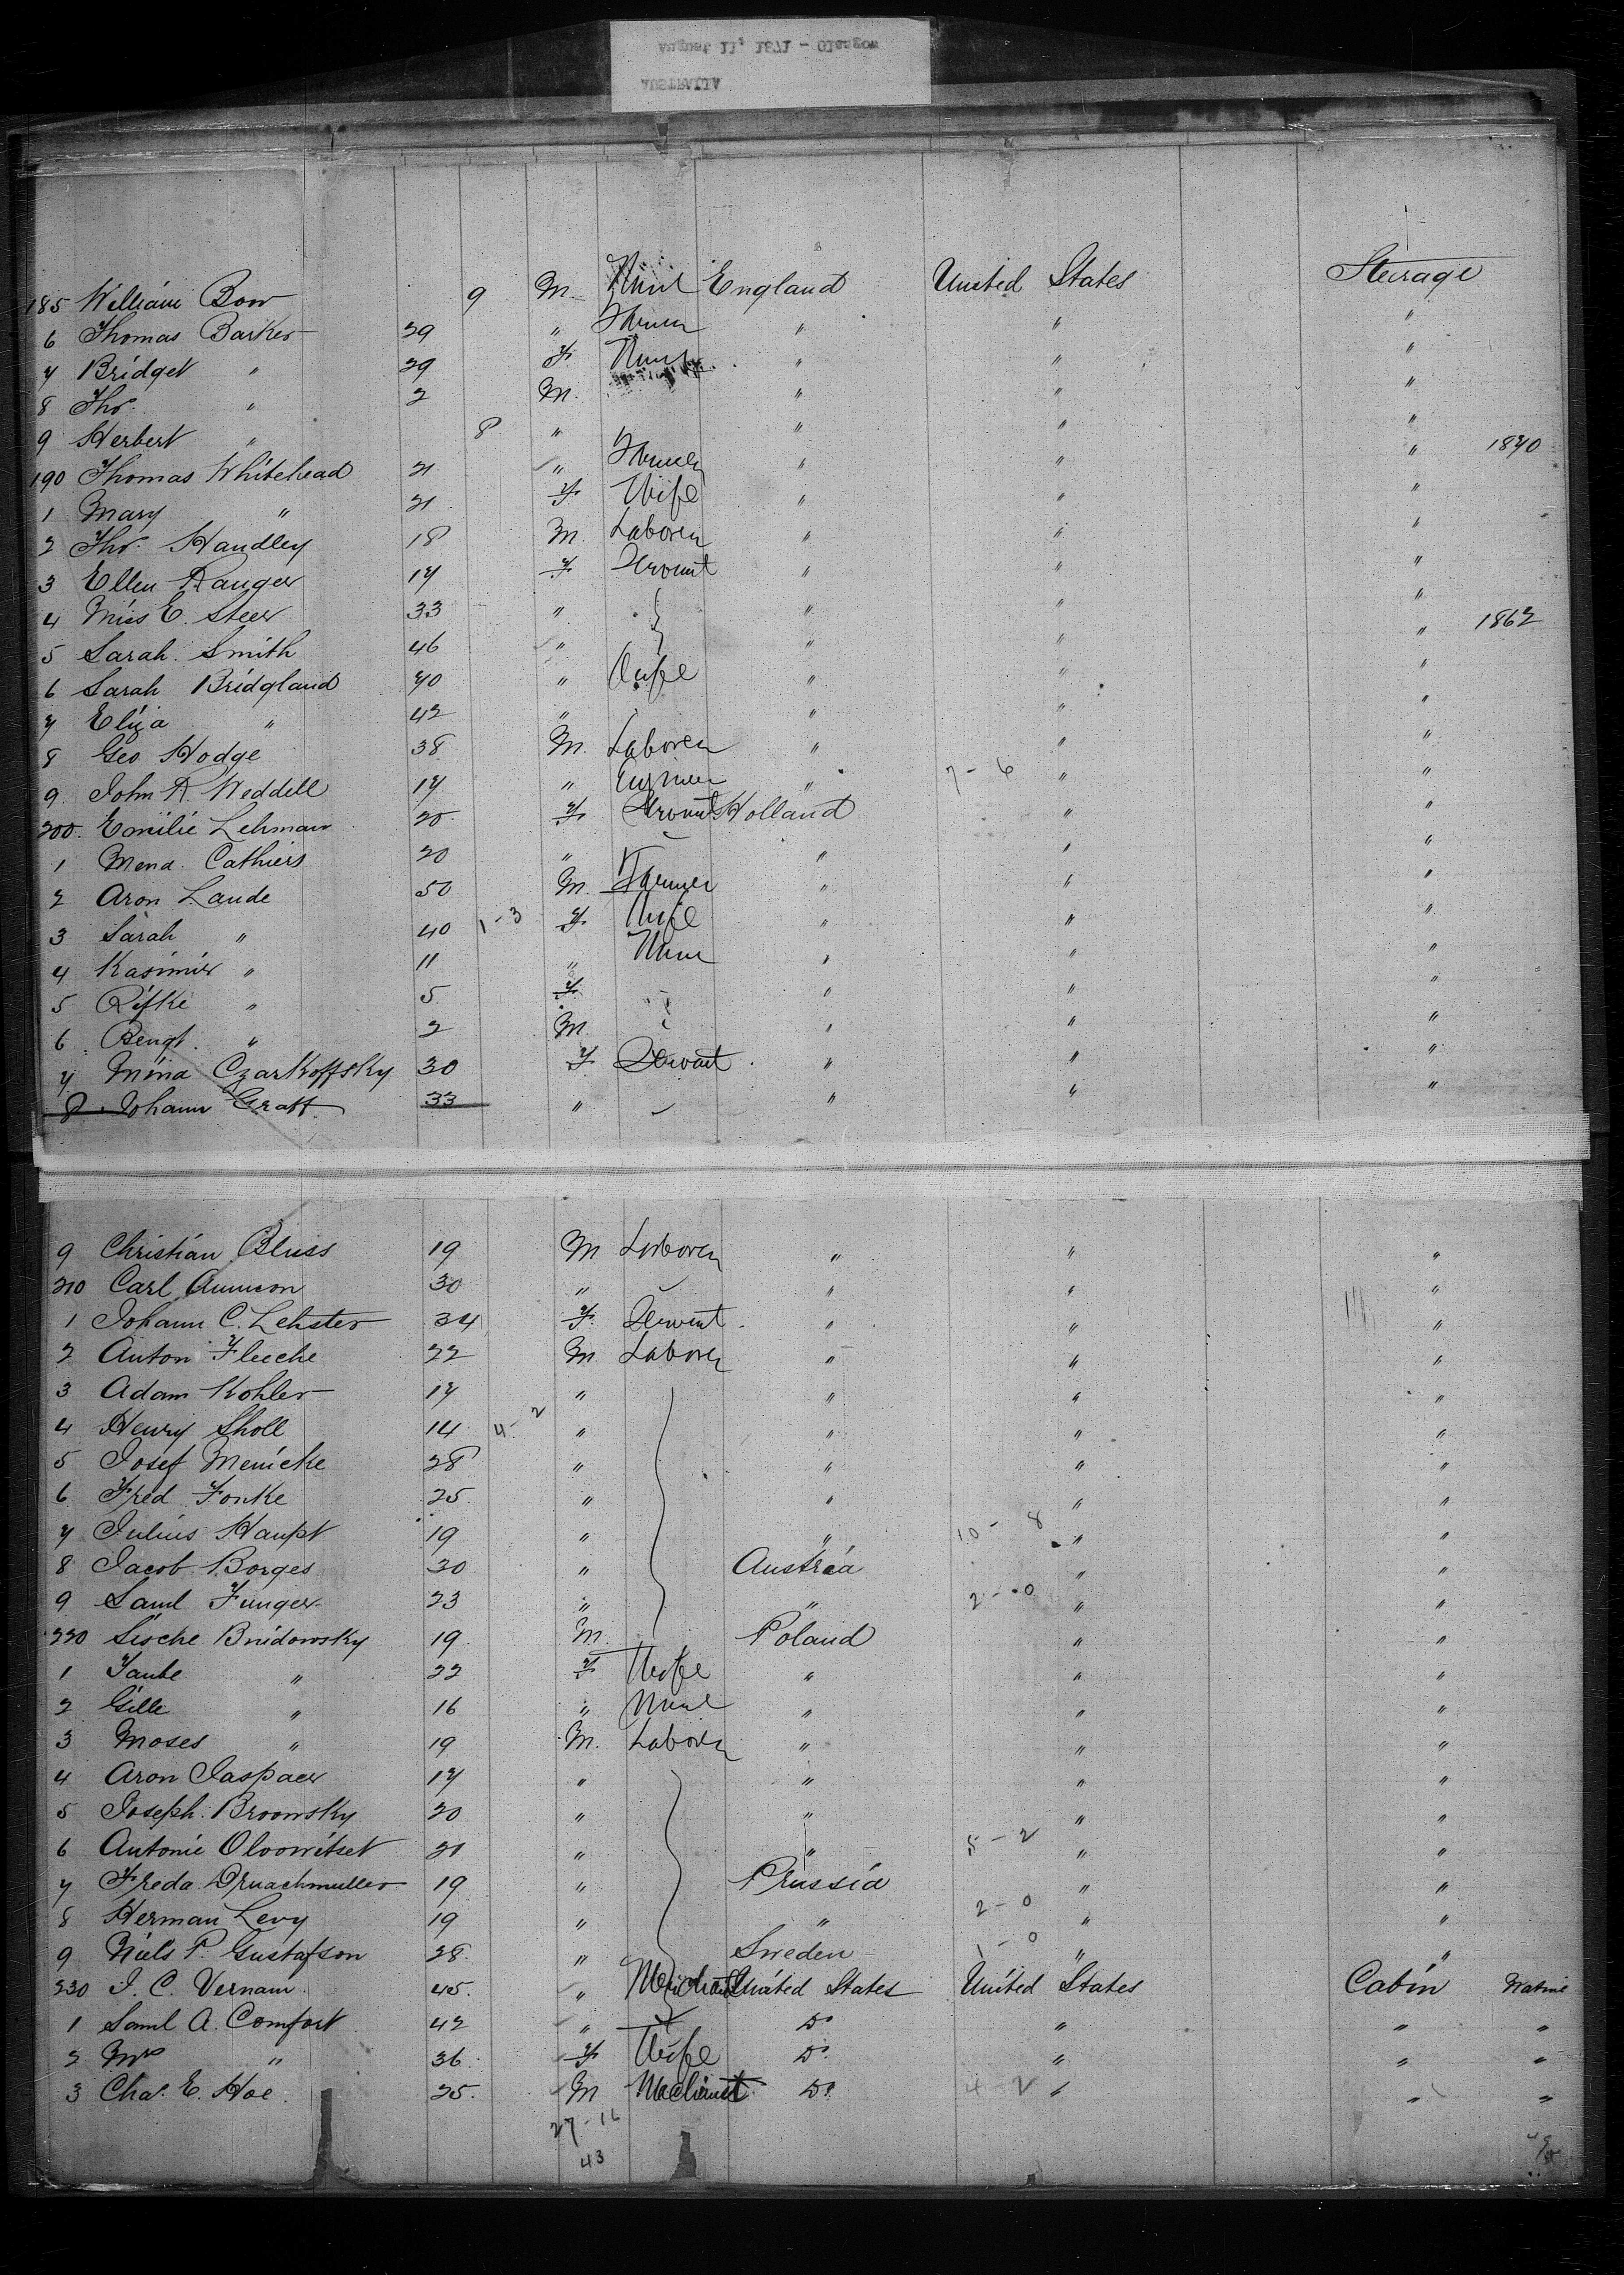 August 11, 1871 - Glasgow
AUSTRALIA
185 William Bow 9 M England United States Steerage
6 Thomas Barker 29 " Farmer " " "
7 Bridget " 29 F " " "
8 Tho. " 2 M. " " "
9 Herbert " 8 " " " "
190 Thomas Whitehead 21 " Farmer " " " 1870
1 Mary " 21 F Wife " " "
2 Tho. Handley 18 M. Laborer " " "
3 Ellen Ranger 17 F Servant " " "
4 Miss E. Steer 33 " " " "
5 Sarah Smith 46 " " " " 1862
6 Sarah Bridgland 70 " Wife " " "
7 Eliza " 42 " " " "
8 Geo Hodge 38 M. Laborer " " "
9 John R. Weddell 17 " Engineer " 7-6 " "
200. Emilie Lehman 20 F Servant Holland " "
1 Mena Cathiers 20 " " " "
2 Aron Laude 50 M. Farmer " " "
3 Sarah " 40 1-3 F Wife " " "
4 Kasimier " 11 " None " " "
5 Rifke " 5 F " " "
6 Bengt. " 2 M " " "
7 Mina Czarkoffsky 30 F Servant " " "
8 Johann Graff 33 " " " "
9 Christian Bluss 19 M Laborer " " "
210 Carl 30 " " " "
1 Johann C. Lehster 34 F Servant " " "
2 Anton Fleeche 22 M Laborer " " "
3 Adam Kohler 17 " " " "
4 Henry Sholl 14 4-2 " " " "
5 Josef Menicke 28 " " " "
6 Fred Fonke 25 " " " "
7 Julius Haupt 19 " " 10-8 " "
8 Jacob Borges 30 " Austria " "
9 Saml Funger 23 " " 2-0 " "
220 Sische Bnidowsky 19 M. Poland " "
1 Taube " 22 F Wife " " "
2 Gille " 16 " None " " "
3 Moses " 19 M. Laborer " " "
4 Aron Jaspaer 17 " " " "
5 Joseph Broowsky 20 " " " "
6 Antonie Oloowitset 21 " " 5-2 " "
7 Freda Druachmuller 19 " Prussia " "
8 Herman Levy 19 " " 2-0 " "
9 Niels P. Gustafson 28 " Sweden 1-0 " "
230 J. C. Vernam 45 " Merchant United States United States Cabin Native
1 Saml A. Comfort 42 " Do " " "
2 Mrs " 36 F Wife Do " " "
3 Chas. E. Hoe 25 M Merchant Do 4-2 " " "
27-16
43